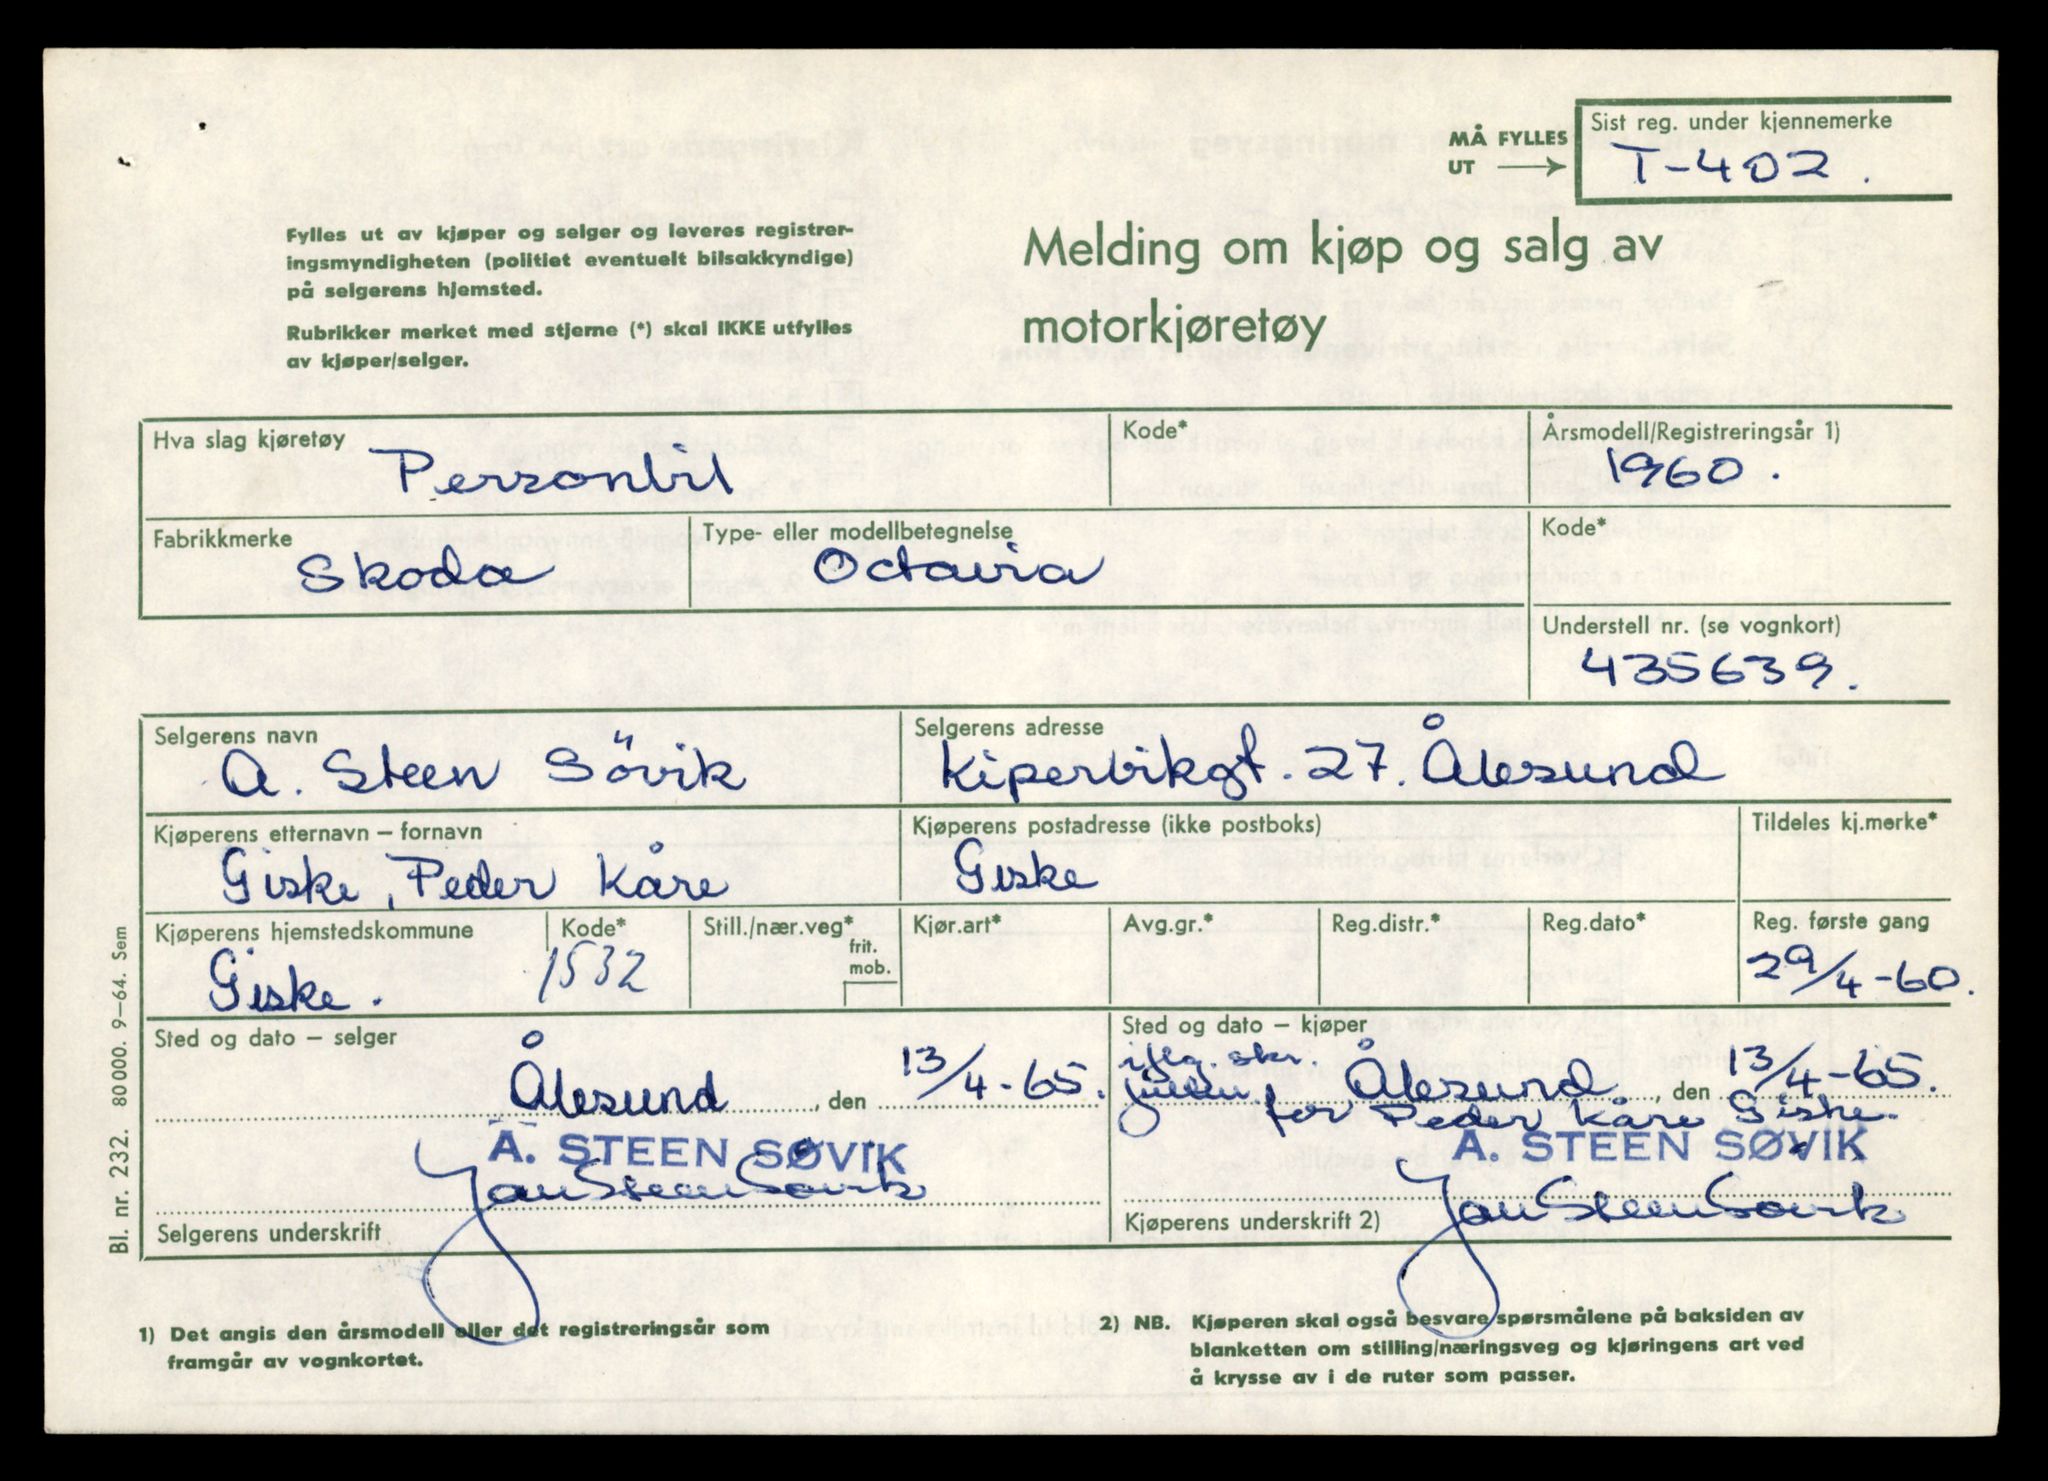 MÅ FYLLES
UT
Sist reg. under kjennemerke
T-402.
Fylles ut av kjøper og selger og leveres registrer-
ingsmyndigheten (politiet eventuelt bilsakkyndige)
på selgerens hjemsted.
Rubrikker merket med stjerne (*) skal IKKE utfylles
av kjøper/selger.
Melding om kjøp og salg av
motorkjøretøy
Hva slag kjøretøy
Personbil
Kode*
Årsmodell/Registreringsår 1)
1960.
Fabrikkmerke
Skoda
Type- eller modellbetegnelse
Octavia
Kode*
Understell nr. (se vognkort)
435639.
Selgerens navn
A. Steen Sövik
Selgerens adresse
Kipervikgt. 27. Ålesund
Kjøperens etternavn – fornavn
Giske, Peder Kåre
Kjøperens postadresse (ikke postboks)
Giske
Tildeles kj.merke*
Kjøperens hjemstedskommune
Giske.
Kode*
1532
Still./nær.veg*
frit.
mob.
Kjør.art*
Avg.gr.*
Reg.distr.*
Reg.dato*
Reg. første gang
29/4-60.
Sted og dato – selger
Ålesund, den 13/4-65.
A. STEEN SØVIK
Jan Steen Søvik
Selgerens underskrift
Sted og dato – kjøper
iflg. skr.
Ålesund, den 13/4-65.
for Peder Kåre Giske.
A. STEEN SØVIK
Jan Steen Søvik
Kjøperens underskrift 2)
Bl. nr. 232. 80 000. 9–64. Sem
1) Det angis den årsmodell eller det registreringsår som
framgår av vognkortet.
2) NB. Kjøperen skal også besvare spørsmålene på baksiden av
blanketten om stilling/næringsveg og kjøringens art ved
å krysse av i de ruter som passer.